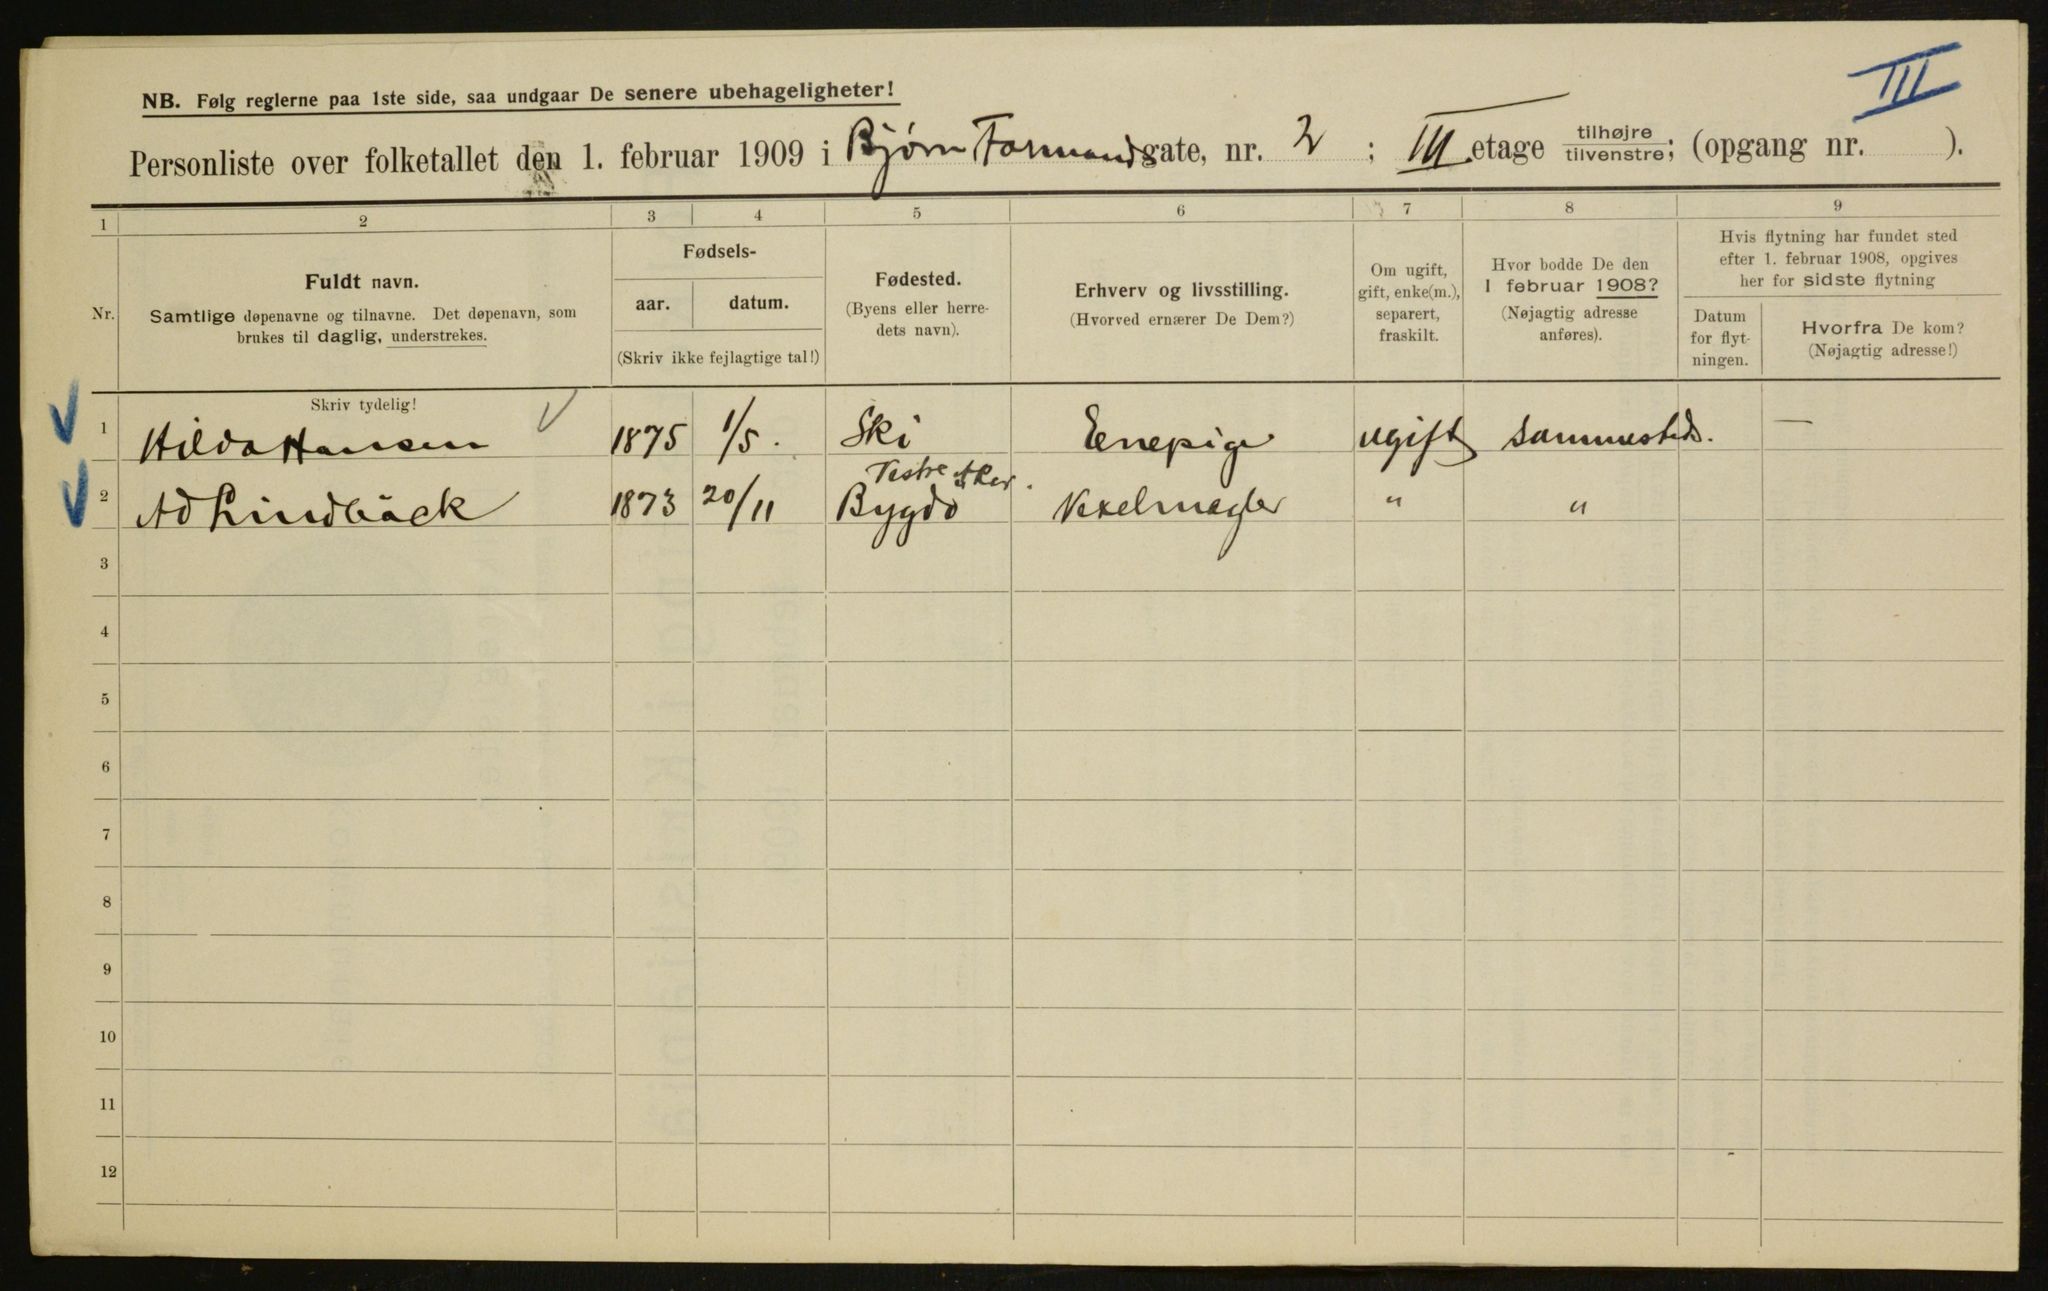 III
NB. Følg reglerne paa 1ste side, saa undgaar De senere ubehageligheter!
Personliste over folketallet den 1. februar 1909 i Bjørn Farmandgate, nr. 2 ; III etage tilhøjre/tilvenstre; (opgang nr. ).
1 2 3 4 5 6 7 8 9
Nr.
Fuldt navn.
Samtlige døpenavne og tilnavne. Det døpenavn, som
brukes til daglig, understrekes.
Fødsels-
aar. datum.
(Skriv ikke fejlagtige tal!)
Fødested.
(Byens eller herre-
dets navn).
Erhverv og livsstilling.
(Hvorved ernærer De Dem?)
Om ugift,
gift, enke(m.),
separert,
fraskilt.
Hvor bodde De den
1 februar 1908?
(Nøjagtig adresse
anføres).
Hvis flytning har fundet sted
efter 1. februar 1908, opgives
her for sidste flytning
Datum
for flyt-
ningen.
Hvorfra De kom?
(Nøjagtig adresse!)
Skriv tydelig!
1 Hilda Hansen 1875 1/5. Ski Eenepige ugift sammesteds. —
Vestre Aker.
2 Ad Lindbäck 1873 20/11 Bygdø Vexelmægler " "
3
4
5
6
7
8
9
10
11
12